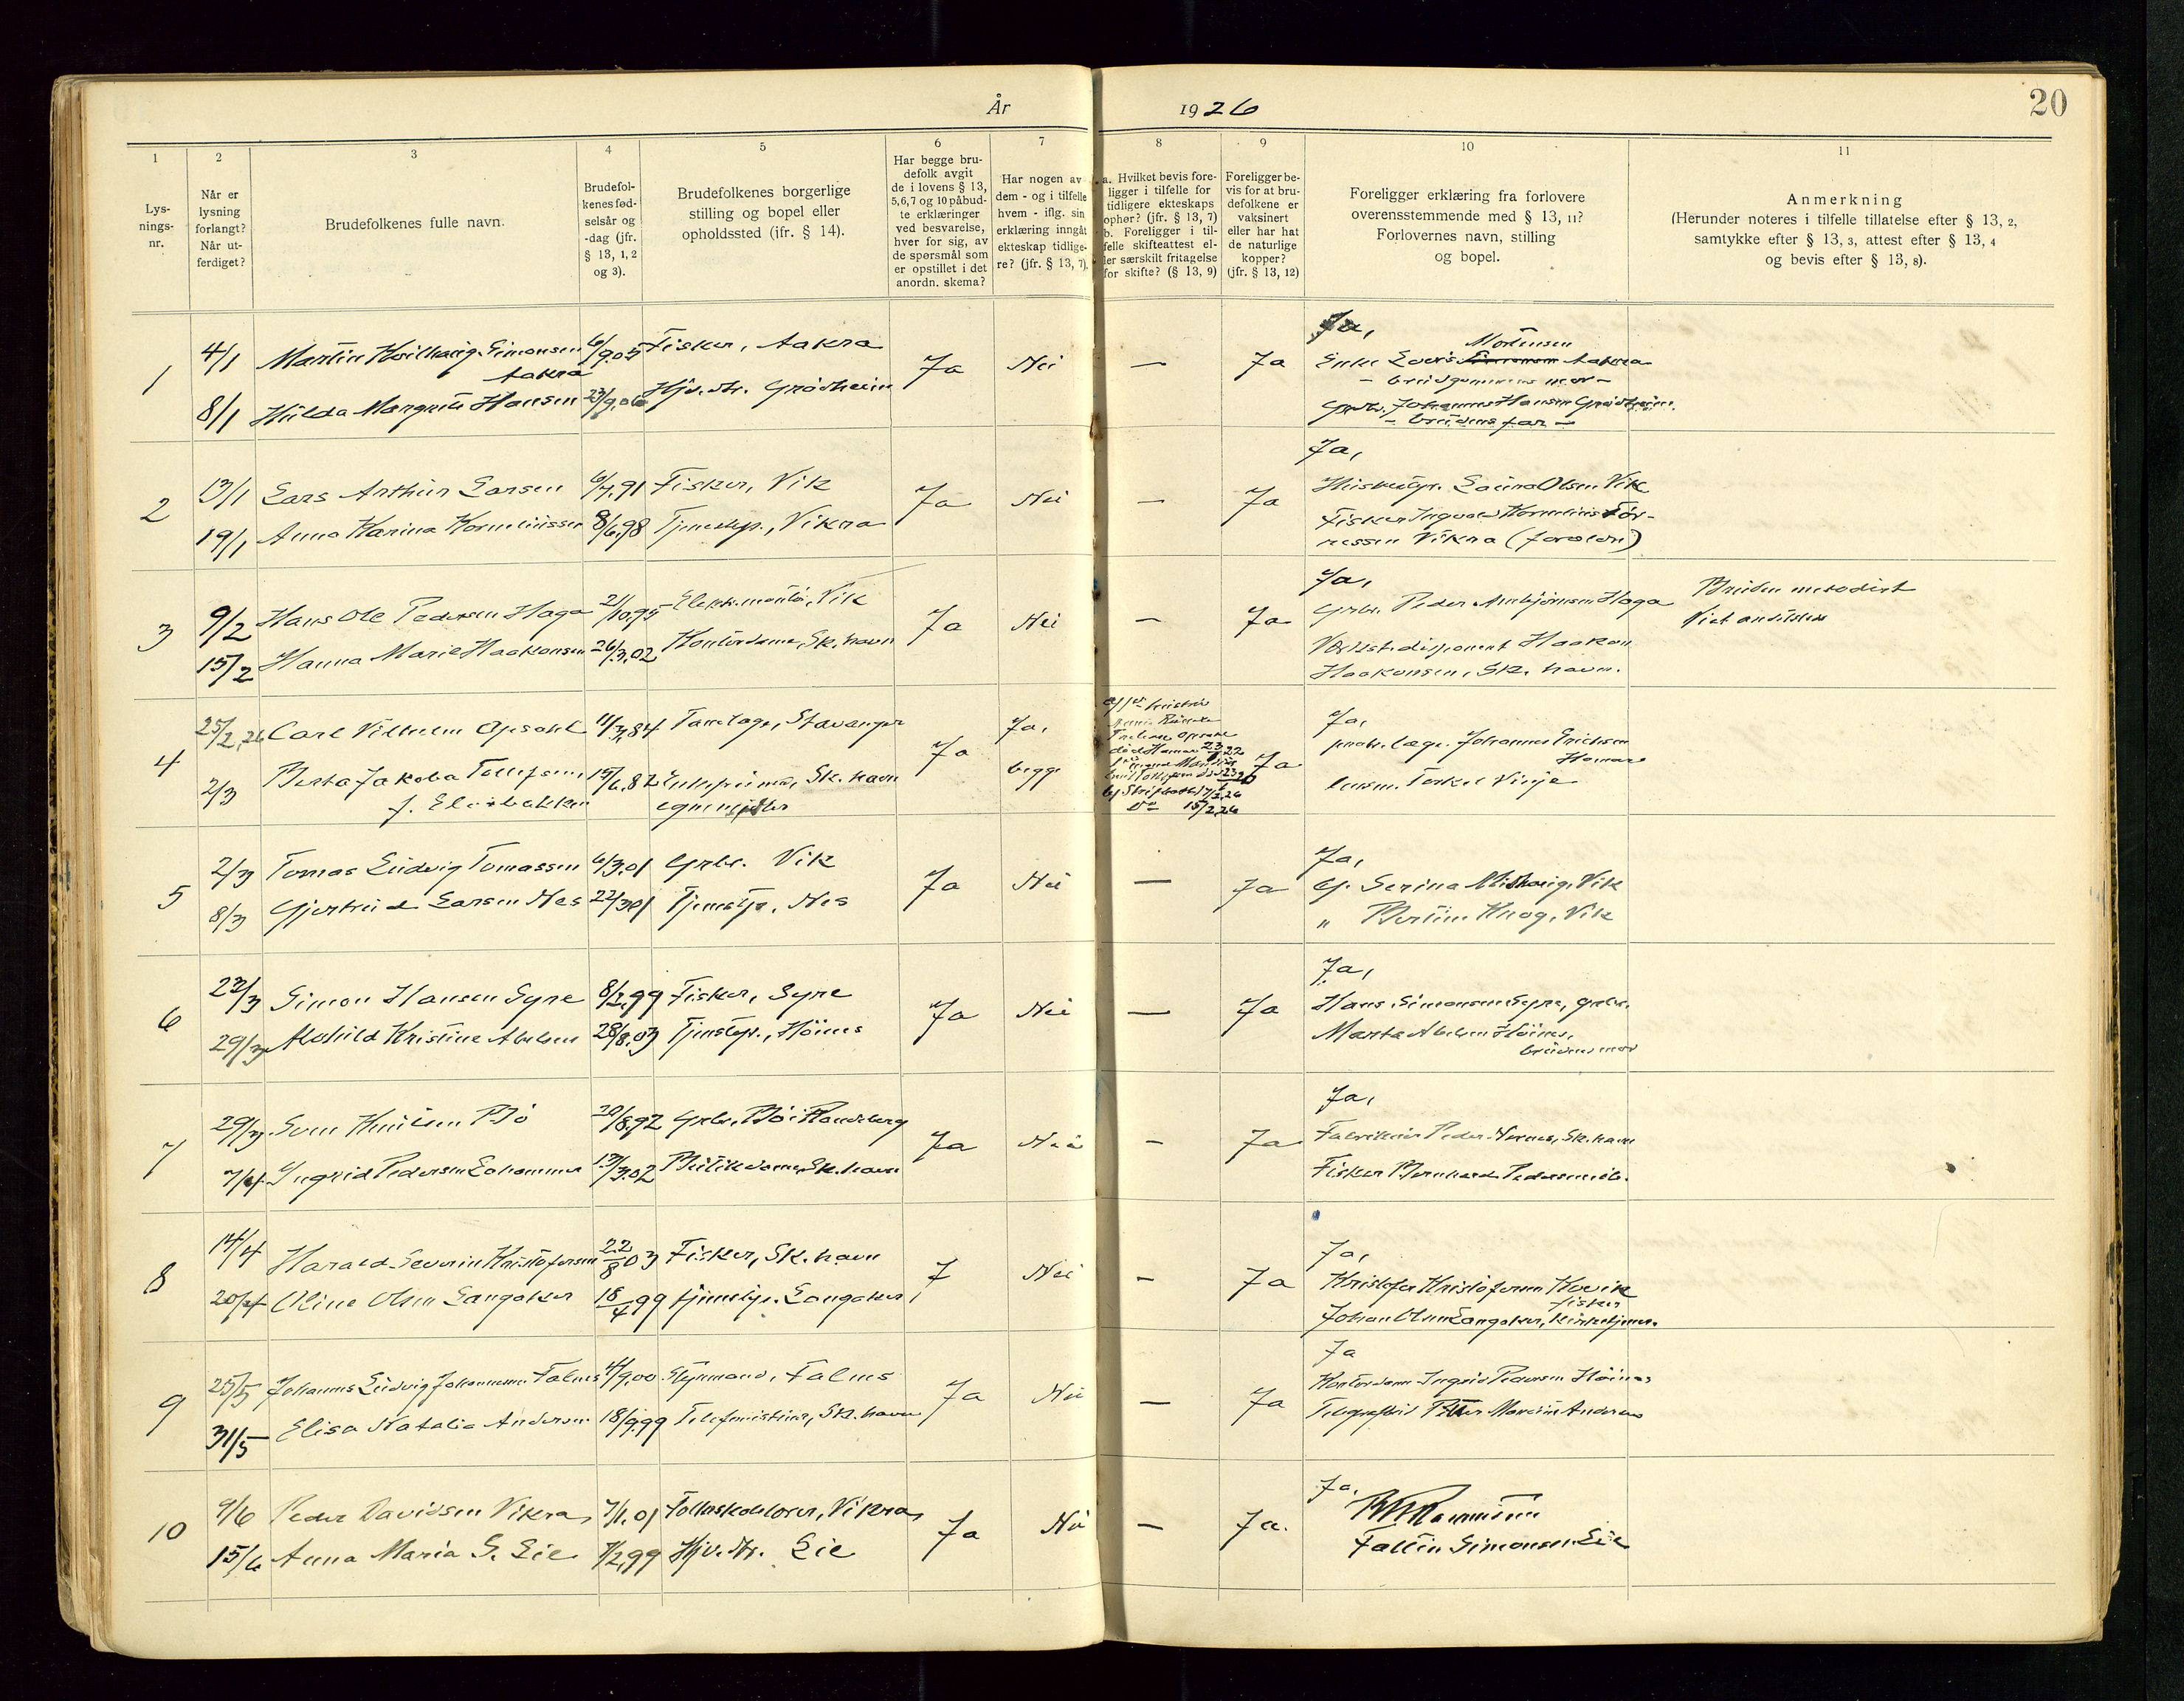 År 1926
20
1
2
3
4
5
6
7
8
9
10
11
Lys-
nings-
nr.
Når er
lysning
forlangt?
Når ut-
ferdiget?
Brudefolkenes fulle navn.
Brudefol-
kenes fød-
selsår og
-dag (jfr.
§ 13, 1, 2
og 3).
Brudefolkenes borgerlige
stilling og bopel eller
opholdssted (ifr. § 14).
Har begge bru-
defolk avgit
de i lovens § 13,
5,6,7 og 10 påbud-
te erklæringer
ved besvarelse,
hver for sig, av
de spørsmål som
er opstillet i det
anordn. skema?
Har nogen av
dem - og i tilfelle
hvem - iflg. sin
erklæring inngåt
ekteskap tidlige-
re? (jfr. § 13, 7).
a. Hvilket bevis fore-
ligger i tilfelle for
tidligere ekteskaps
ophør? (jfr. § 13, 7)
b. Foreligger i til-
felle skifteattest el-
ler særskilt fritagelse
for skifte? (§ 13, 9)
Foreligger be-
vis for at bru-
defolkene er
vaksinert
eller har hat
de naturlige
kopper?
(jfr. § 13, 12)
Foreligger erklæring fra forlovere
overensstemmende med § 13, 11?
Forlovernes navn, stilling
og bopel.
Anmerkning
(Herunder noteres i tilfelle tillatelse efter § 13, 2,
samtykke efter § 13, 3, attest efter § 13, 4
og bevis efter § 13, 8).
1
4/1 Martin Simonsen 6/9.05 Fisker, Aakra
Aakra
8/1 Hilda Margrete Hansen 23/9.06 Hjv. dtr. Grødheim
Ja Nei — Ja
Ja,
Mortensen
Enke Aakra
- brudgommens mor -
Grbr. Johannes Hansen Grødheim
- brudens far -
2
13/1 Lars Arthur Larsen 6/7.91 Fisker, Vik
19/1 Anna Karina Korneliussen 8/6.98 Tjenestep., Vikra
Ja Nei — Ja
Ja,
Olsen Vik
Fisker Ingvald Kornelius Tør-
ressen Vikra (foreldre)
3
9/2 Hans Ole Pedersen Haga 21/10.95 Elektr.montør, Vik
15/2 Hanna Marie Haakonsen 26/3.02 Kontordame, Sk. havn
Ja Nei — Ja
Ja,
Grbr. Peder Haga
Verkst.disponent Haakon
Haakonsen, Sk. havn.
Bruden metodist
Viet andetsteds
4
25/2.26 Carl Vilhelm Opsahl 11/3.84 Tannlæge, Stavanger
2/3 Berta Jakoba Tollefsen, 15/6.82 Sk. havn
f.
Ja
Ja,
begge
15/2.26
Ja
Ja,
prakt. læge Johannes Erichsen
Hamar
lensm. Torkel Vinje
5
2/3 Tomas Ludvig Tomassen 6/3.01 Grbr. Vik
8/3 Gjertrud Larsen Nes 22/3.01 Tjenestp., Nes
Ja Nei — Ja
Ja,
G. Serina Vik
" Bertine Vik
6
22/3 Simon Hansen Syre 8/2.99 Fisker, Syre
29/3 Alvhild Kristine Abelsen 28/8.03 Tjenestp., Høines
Ja Nei — Ja
Ja,
Hans Simonsen Syre, grbr.
Marta Abelsen Høines,
brudens mor
7
29/3 Sven Knutsen Bø 20/8.92 Grbr., Bø i Randeberg
7/4 Ingrid Pedersen Lahammer 13/3.02 Butikdame, Sk. havn
Ja Nei - Ja
Ja,
Fabrikeier Peder Nornes, Sk. havn
Fisker Bernhard Pedersen ib.
8
14/4 Harald Severin Kristofersen 22/8 03 Fisker, Sk. havn
20/4 Oline Olsen Langaker 18/4 99 tjenestp. Langaker
J Nei - Ja
Ja,
Kristofer Kristofersen Kvevik
fisker
Johan Olsen Langaker, kirketjener.
9
25/5 Johannes Ludvig Johannessen Falnes 4/9.00 Styrmand, Falnes
31/5 Elisa Natalie Andersen 18/9.99 Telefonistinne, Sk. havn
Ja Nei — Ja
Ja
Kontordame Ingrid Pedersen Høines
Andersen
10
9/6 Peder Davidsen Vikra 7/1.01 Folkeskolelærer, Vikra
15/6 Anna Maria S. Lie 7/2.99 Hjv. dtr. Lie
Ja Nei — Ja.
Ja.
Rasmussen
Fallin Simonsen Lie